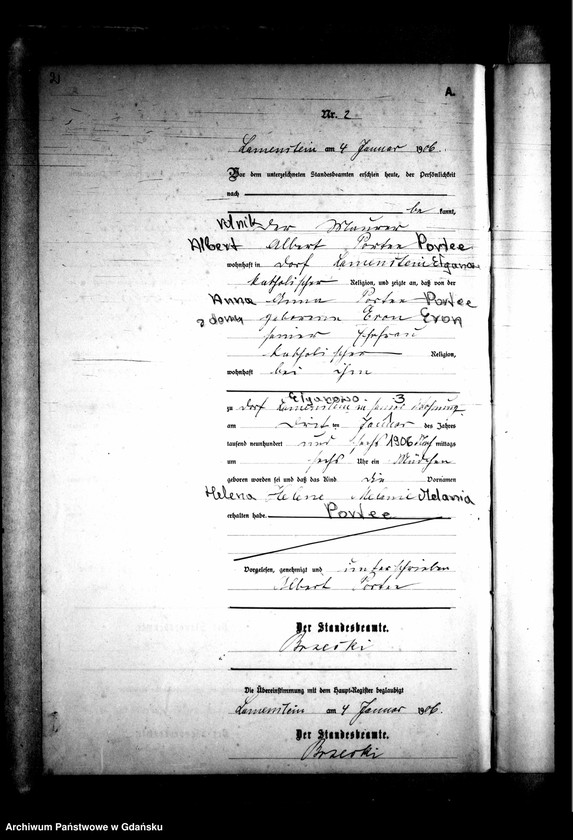 2)
A.
Nr. 2
Lamenstein am 4 Januar 1906.
Vor dem unterzeichneten Standesbeamten erschien heute, der Persönlichkeit
nach
be kannt,
rolnik der Maurer
Albert Albert Portee Portee
wohnhaft in Dorf Lamenstein Ełganowo
katholischer Religion, und zeigte an, daß von der
Anna Anna Portee Portee
z domu geborenen Eron Eron
seiner Ehefrau
katholischer Religion,
wohnhaft bei ihm
Ełganowo. 3
zu Dorf Lamenstein in seiner Wohnung
am Januar des Jahres
tausend neunhundert und sechs 1906 Nach mittags
um sechs Uhr ein Mädchen
geboren worden sei und daß das Kind die Vornamen
Helena Helene Melanie Melania
erhalten habe. Portee
Vorgelesen, genehmigt und unterschrieben
Albert Portee
Der Standesbeamte.
Brzeski
Die Übereinstimmung mit dem Haupt-Register beglaubigt
Lamenstein am 4 Januar 1906.
Der Standesbeamte.
Brzeski
Archiwum Państwowe w Gdańsku